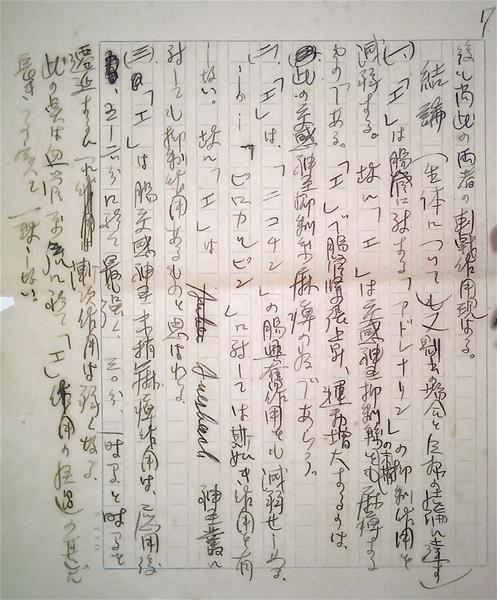 後も尚此の両者の刺戟作用現はる。
結論 (生体についても又剔出の場合と同様の結論に達す)
(一)、「エ」は腸管に対する「アドレナリン」の抑制作用を
減弱する。故に「エ」は交感神経抑制纎維の末梢をも麻痺する
ものである。「エ」で腸管緊張上昇、運動増大するのは、
此の交感神経抑制末梢麻痺の為であらう。
(二)、「エ」は、「ニコチン」の腸興奮作用をも減弱せしめる。
しかし「ピロカルピン」に対しては斯如き作用を有
しない。故に「エ」は Auerbach 神経叢に
対しても抑制作用あるものと思はれる。
(三)、「エ」は腸交感神経末梢麻痺作用は、応用後
五-二〇分に於て最も強く、三〇分、一時間と時間を
遷延するにつれ作用は漸次作用は弱くなる。
此の点は血管系統に於て「エ」作用の経過の甚だ
長き 一致しない。